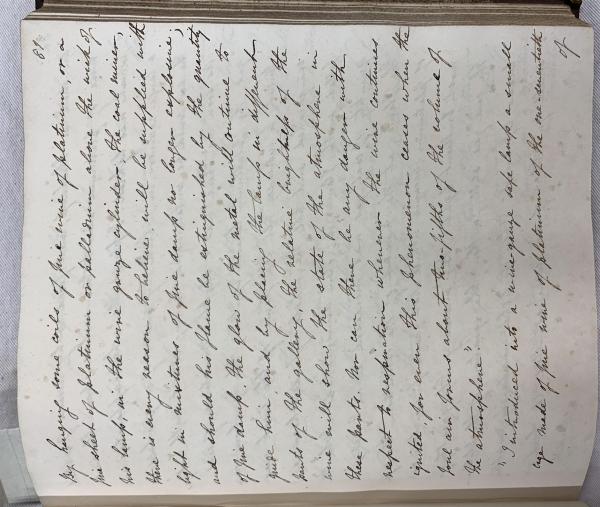 89
By hanging some coils of fine wire of platinum, or a
fine sheet of platinum or palladium above the wick of
his lamp, in the wire gauze cylinder, the coal miner,
there is every reason to believe will be supplied with
light in mixtures of fire damp no longer explosive;
and should his flame be extinguished by the quantity
of fire damp, the glow of the metal will continue to
guide him and by placing the lamp in different
parts of the gallery, the relative brightness of the
wire will show the state of the atmosphere in
these parts. Nor can there be any danger with
respect to respiration whenever the wire continues
ignited, for even this phenomenon ceases when the
foul air forms about two-fifths of the volume of
the atmosphere."
"I introduced into a wire-gauze safe lamp a small
cage made of fine wire of platinum of the one-seventieth
of